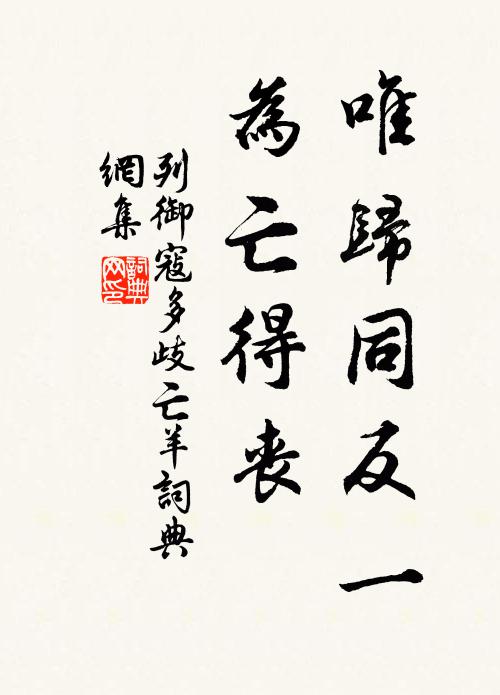 唯歸同反一
為亡得喪
列御寇多歧亡羊詞典
網集
詞典
网印